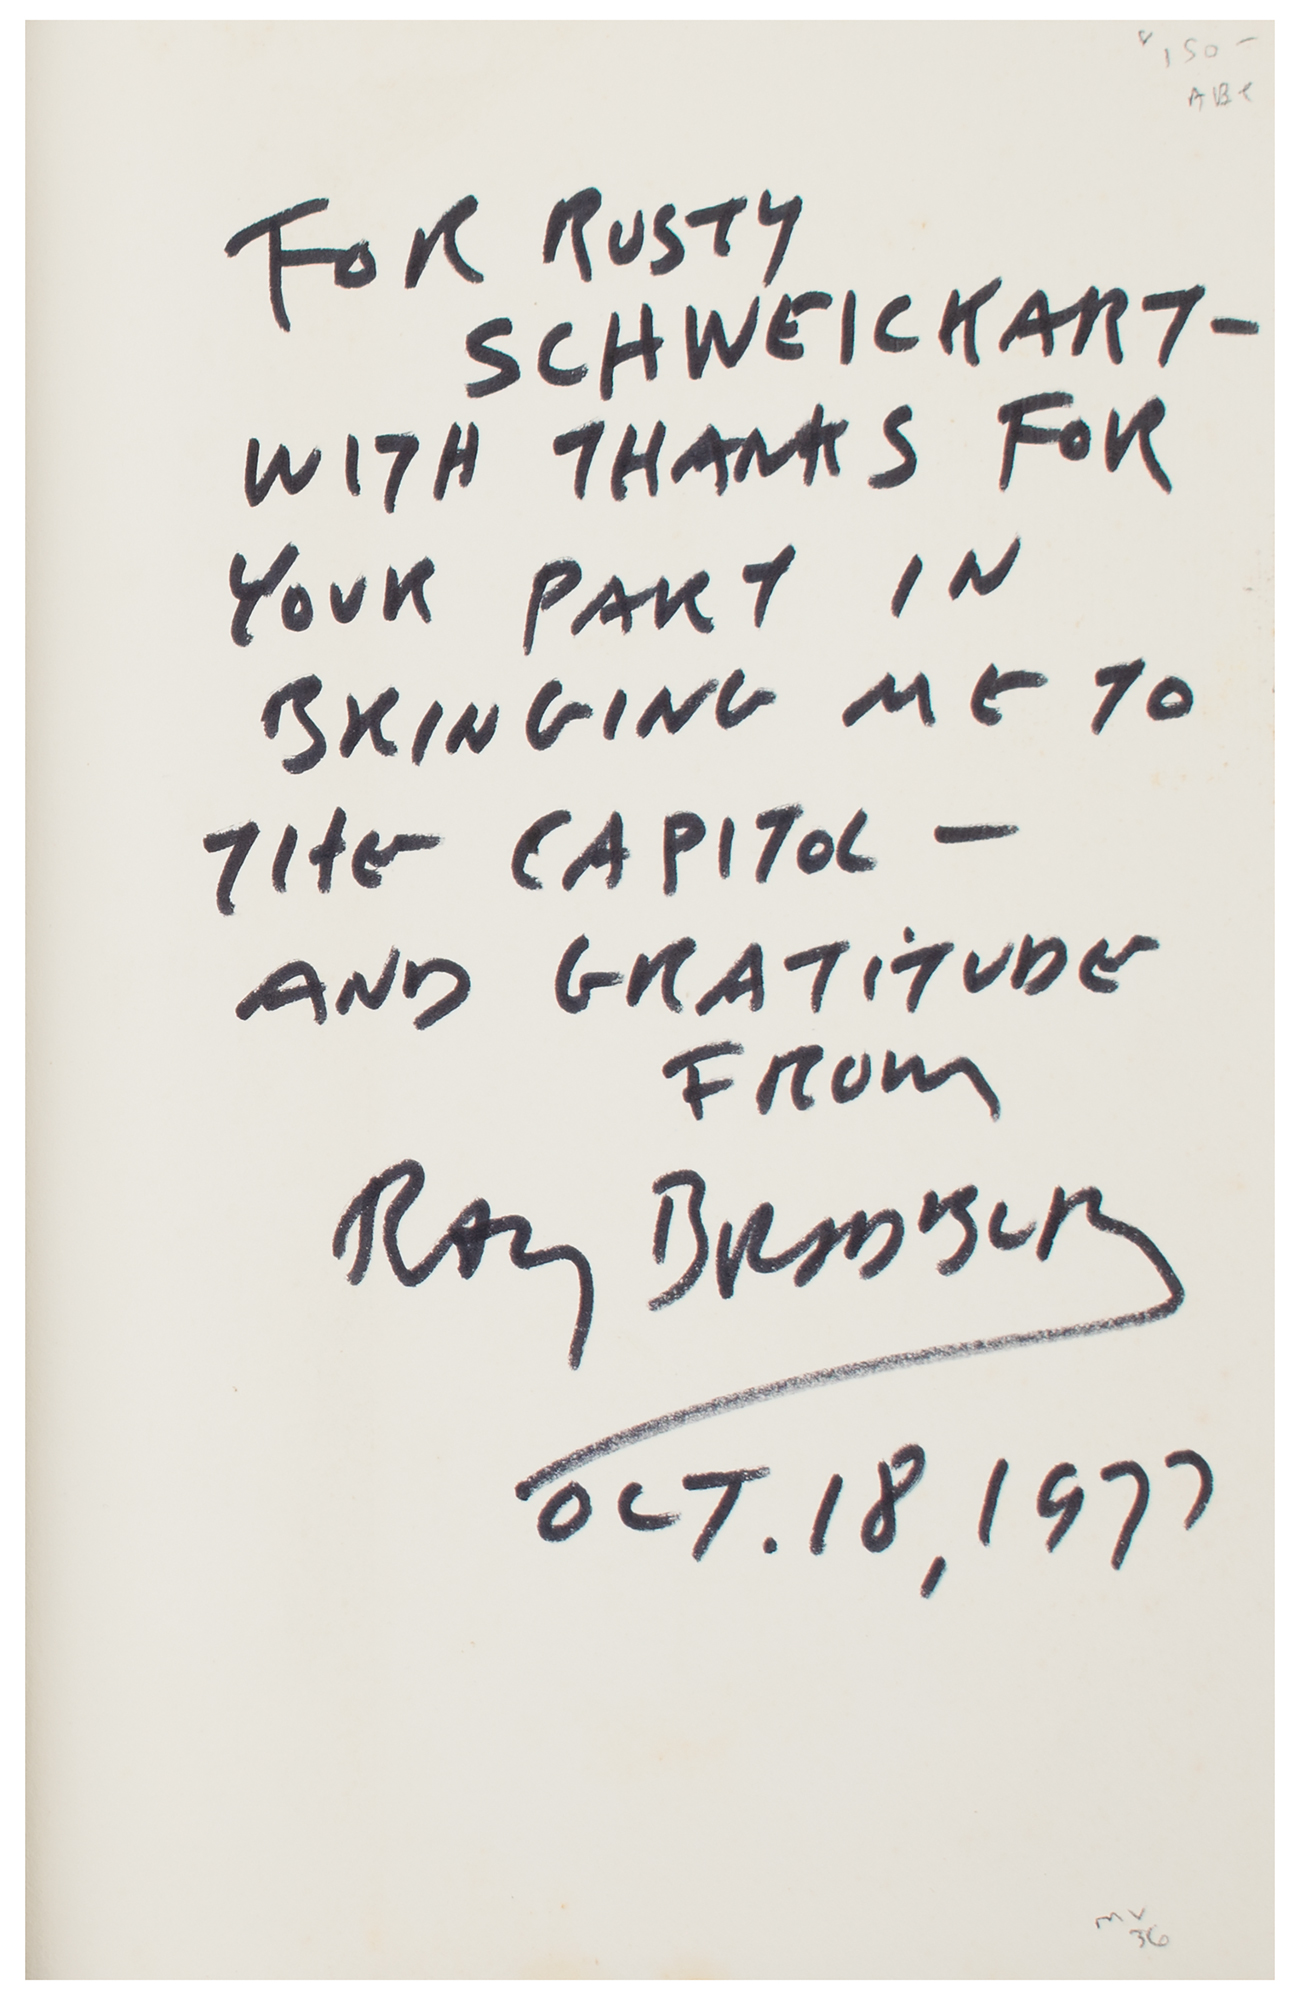 150-
ABC
FOR RUSTY
SCHWEICKART-
WITH THANKS FOR
YOUR PART IN
BRINGING ME TO
THE CAPITOL -
AND GRATITUDE
FROM
RAY BRADBURY
OCT. 18, 1977
MV
36